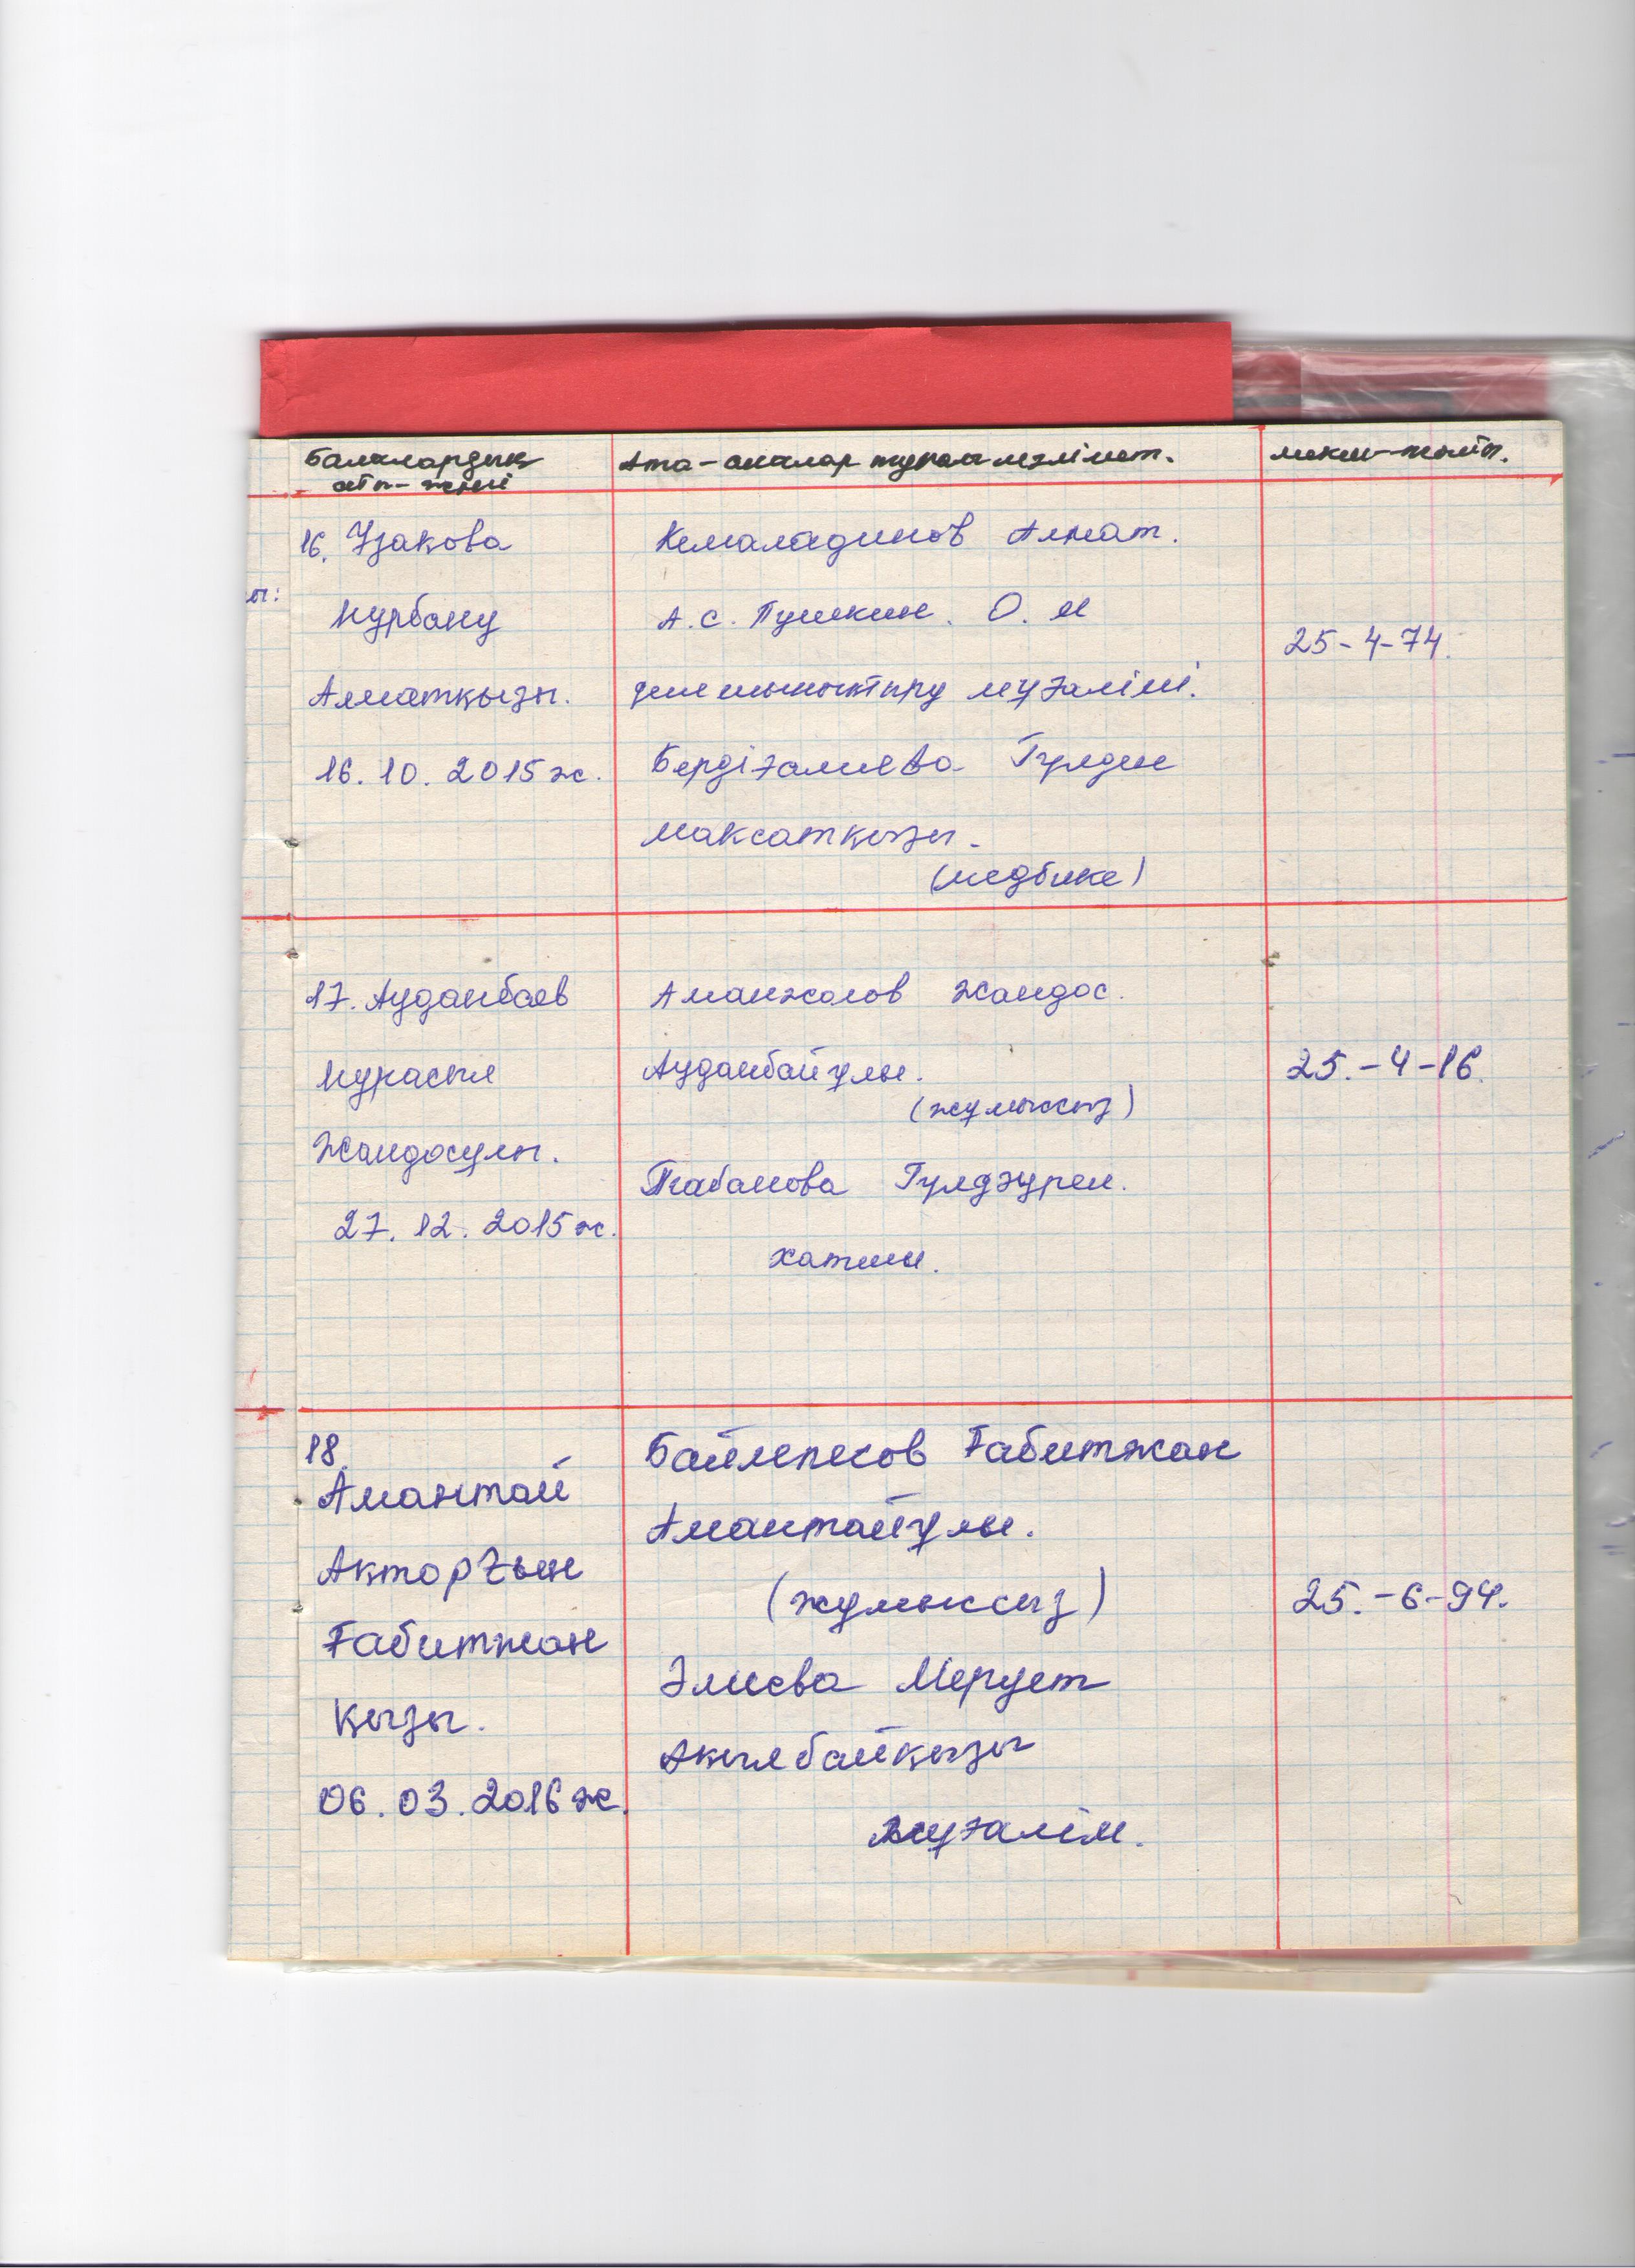 Балалардың Ата-аналар туралы мәлімет. мекен-жайы.
аты-жөні
16. Ұзакова Кемаладинов Алмат.
ы:
Нұрбану А.С. Пушкин. О.М
25-4-74.
Алматқызы. дене шынықтыру мұғалімі.
16.10.2015ж. Бердіғалиева Гүлден
Максатқызы.
(медбике)
17. Ауданбаев Аманжолов Жандос.
Нурасыл Ауданбайұлы. 25.-4-16.
(жұмыссыз)
Жандосұлы. Табанова Гүлдәурен.
27.12.2015ж.
хатшы.
18. Байлепесов Ғабитжан
Амантай Амантайұлы.
Ақторғын (жұмыссыз) 25.-6-94.
Ғабитжан
Әлиева Мерует
қызы. Ақылбайқызы
06.03.2016ж.
мұғалім.